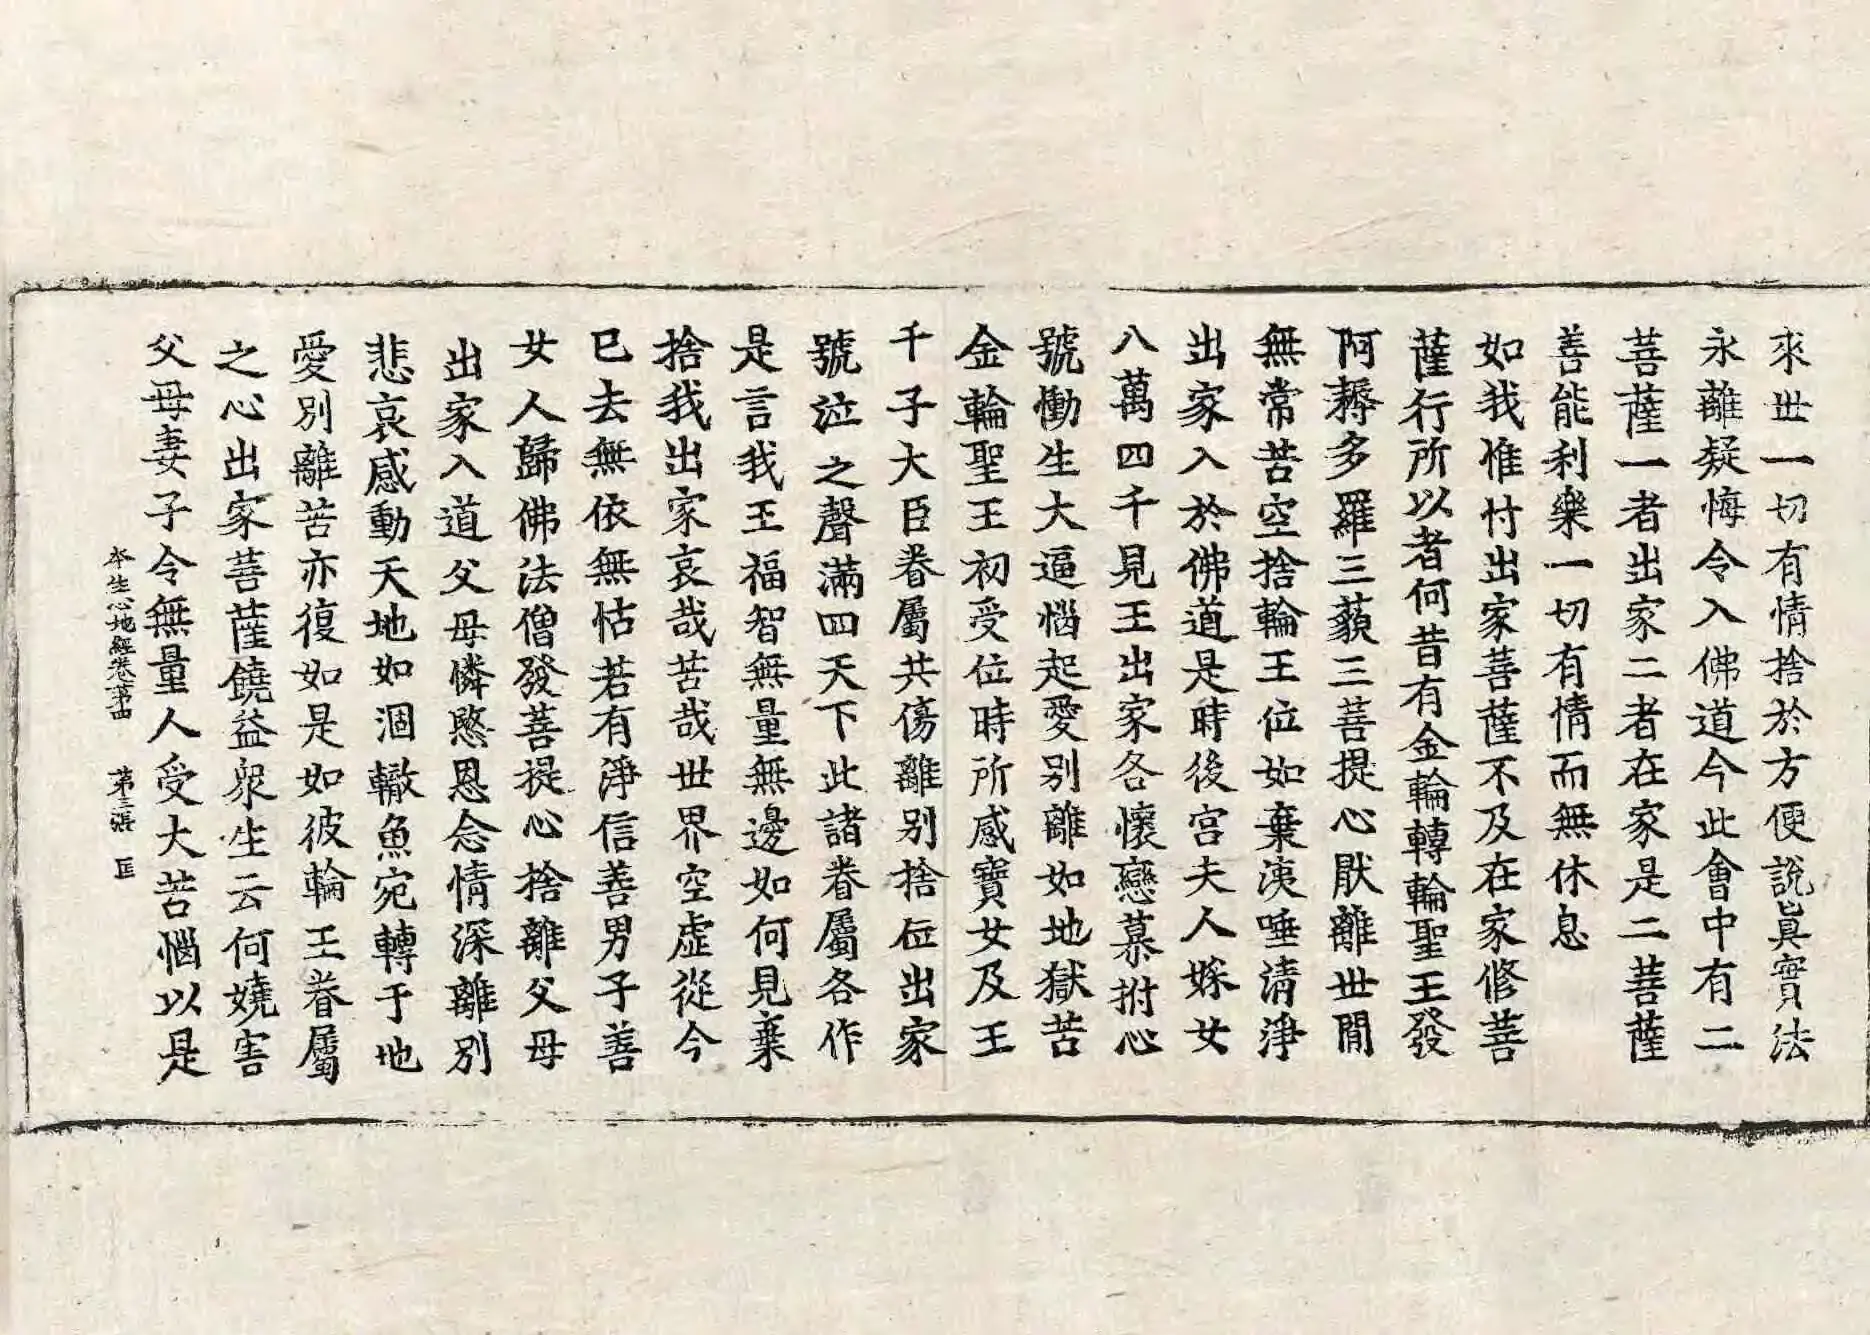 來世一切有情捨於方便說眞實法
永離疑悔令入佛道今此會中有二
菩薩一者出家二者在家是二菩薩
善能利樂一切有情而無休息
如我惟忖出家菩薩不及在家修菩
薩行所以者何昔有金輪轉輪聖王發
阿耨多羅三藐三菩提心厭離世間
無常苦空捨輪王位如棄洟唾清淨
出家入於佛道是時後宮夫人婇女
八萬四千見王出家各懷戀慕拊心
號慟生大逼惱起愛別離如地獄苦
金輪聖王初受位時所感寶女及王
千子大臣眷屬共傷離別捨位出家
號泣之聲滿四天下此諸眷屬各作
是言我王福智無量無邊如何見棄
捨我出家哀哉苦哉世界空虛從今
已去無依無怙若有淨信善男子善
女人歸佛法僧發菩提心捨離父母
出家入道父母憐愍恩念情深離別
悲哀感動天地如涸轍魚宛轉于地
愛別離苦亦復如是如彼輪王眷屬
之心出家菩薩饒益衆生云何嬈害
父母妻子令無量人受大苦惱以是
本生心地經卷第四 第三張 匡